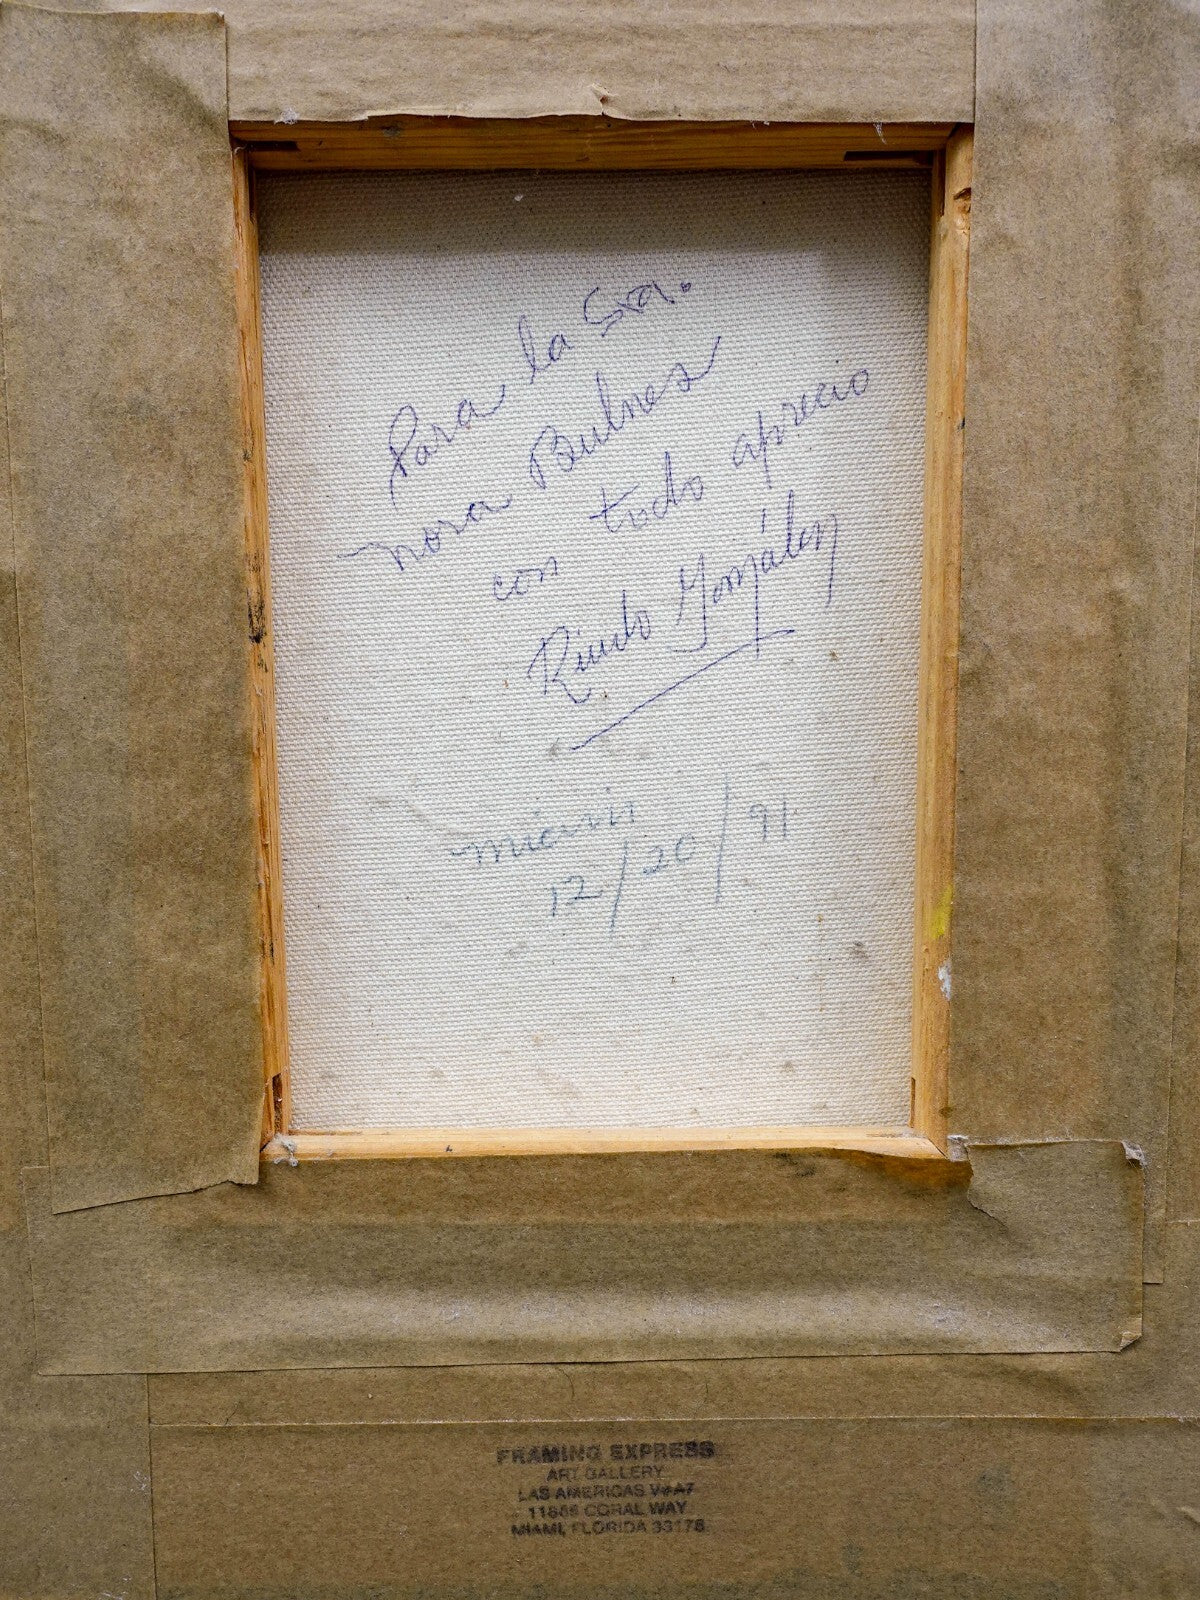 Para la Sra.
Nora Bulnes
con todo aprecio
González
Miami
12/20/91
FRAMING EXPRESS
ART GALLERY
LAS AMERICAS
CORAL WAY
MIAMI, FLORIDA